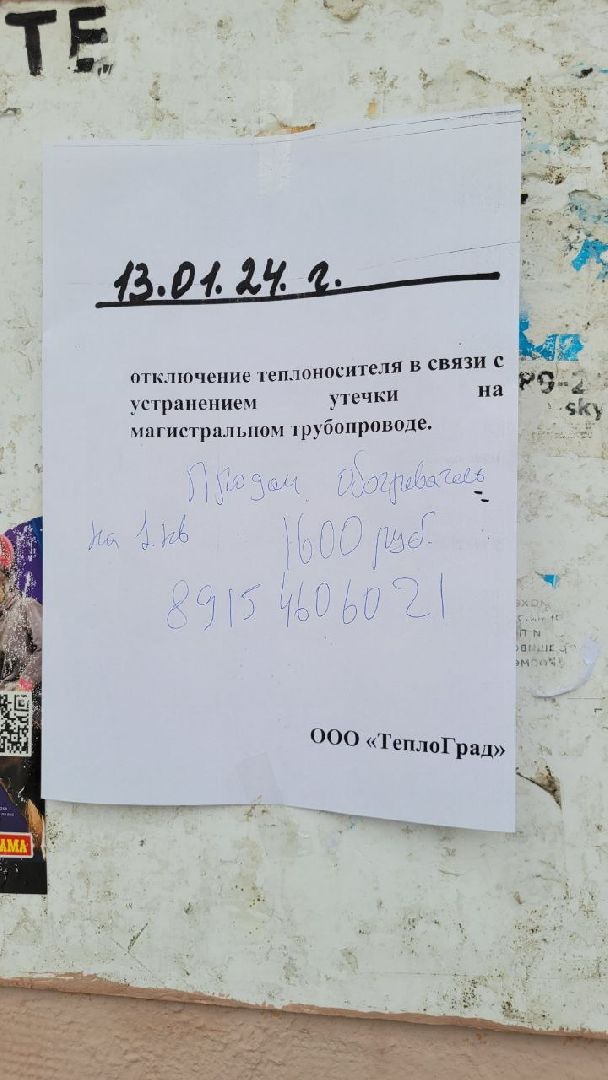 ТЕ
13.01.24. г.
отключение теплоносителя в связи с
устранением утечки на
магистральном трубопроводе.
Продам Обогреватель
на 1.кв 1600 руб.
8915 4606021
ООО «ТеплоГрад»
P9-2
sky
и п
АМА